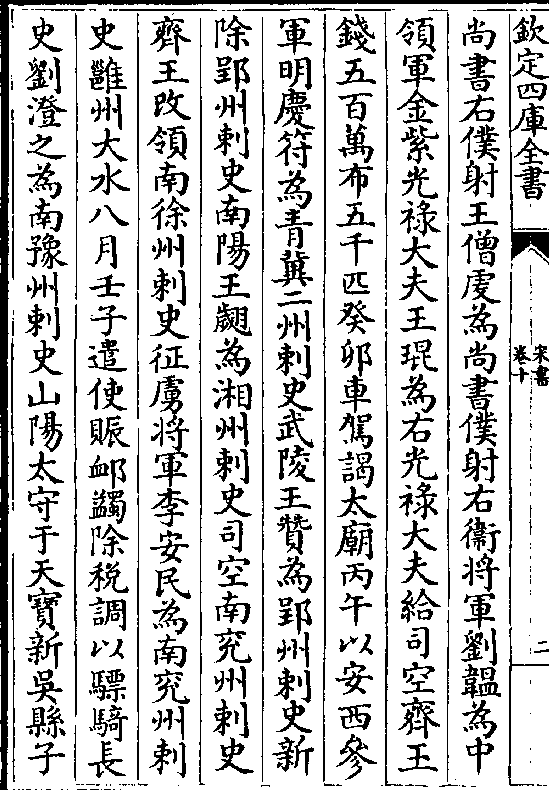 欽定四庫全書
宋書
卷十
二
尚書右僕射王僧虔為尚書僕射右衞將軍劉韞為中
領軍金紫光祿大夫王琨為右光祿大夫給司空齊王
錢五百萬布五千匹癸卯車駕謁太廟丙午以安西參
軍明慶符為青冀二州刺史武陵王贊為郢州刺史新
除郢州刺史南陽王翽為湘州刺史司空南兖州刺史
齊王改領南徐州刺史征虜將軍李安民為南兖州刺
史雝州大水八月壬子遣使賑䘏蠲除税調以驃騎長
史劉澄之為南豫州刺史山陽太守于天寶新吳縣子